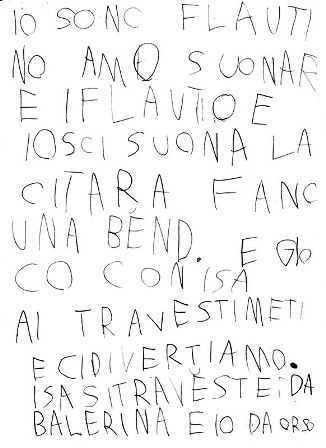 IO SONO FLAUTI
NO AMO SUONAR
E IFLAUTO E
IOSCI SUONA LA
CITARA FANO
UNA BEND. E GIO
CO CON ISA
AI TRAVESTIMETI
E CIDIVERTIAMO.
ISA SITRAVESTE: DA
BALERINA E IO DA ORSO